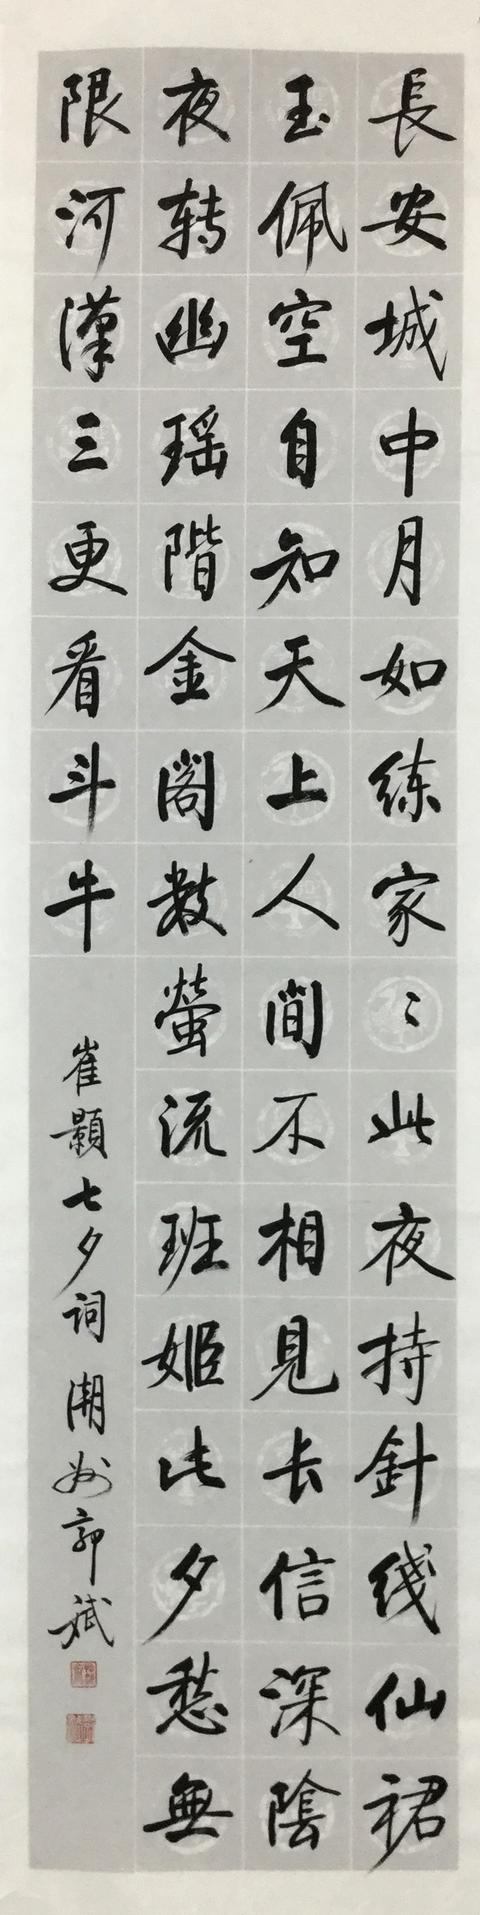 長安城中月如练家〻此夜持針线仙裙
玉佩空自知天上人间不相見长信深陰
夜转幽瑶階金阁数螢流班姬此夕愁無
限河漢三更看斗牛
崔颢七夕词潮州郭斌